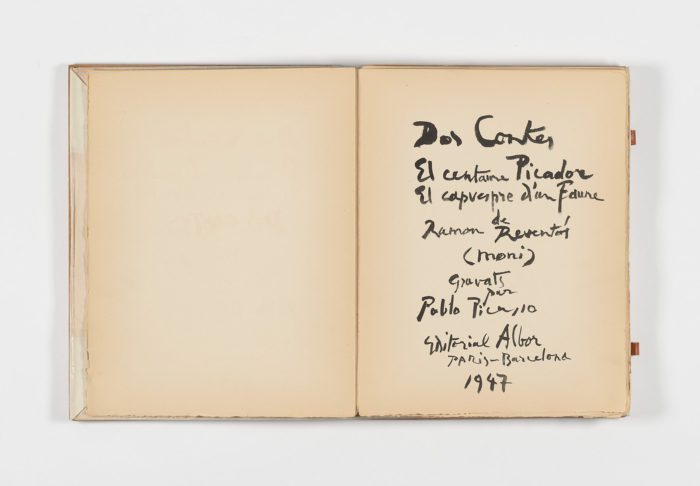 Dos Contes
El centaure Picador
El capvespre d'un Faune
de
Ramon Reventós
(moni)
gravats
par
Pablo Picasso
Editorial Albor
PARIS-Barcelona
1947